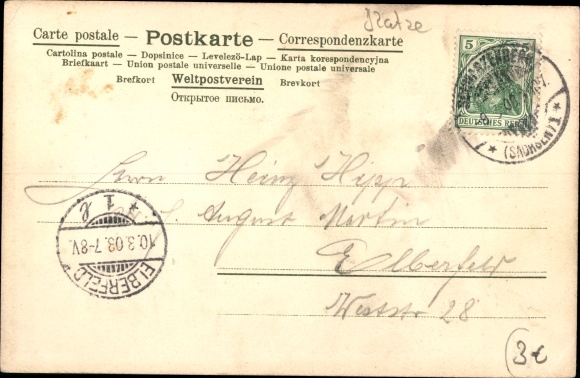 Katze
Carte postale — Postkarte — Correspondenzkarte
Cartolina postale — Dopisnice — Levelező-Lap — Karta korespondencyjna
Briefkaart — Union postale universelle — Unione postale universale
Brefkort Weltpostverein Brevkort
Открытое письмо.
5
DEUTSCHES REICH
SCHWARZENBERG
* (SACHSEN) *
Herrn Heinz Hipp
August Martin
Elberfeld
Weststr 28
* 1 *
10.3.03.7-8V.
ELBERFELD
3€